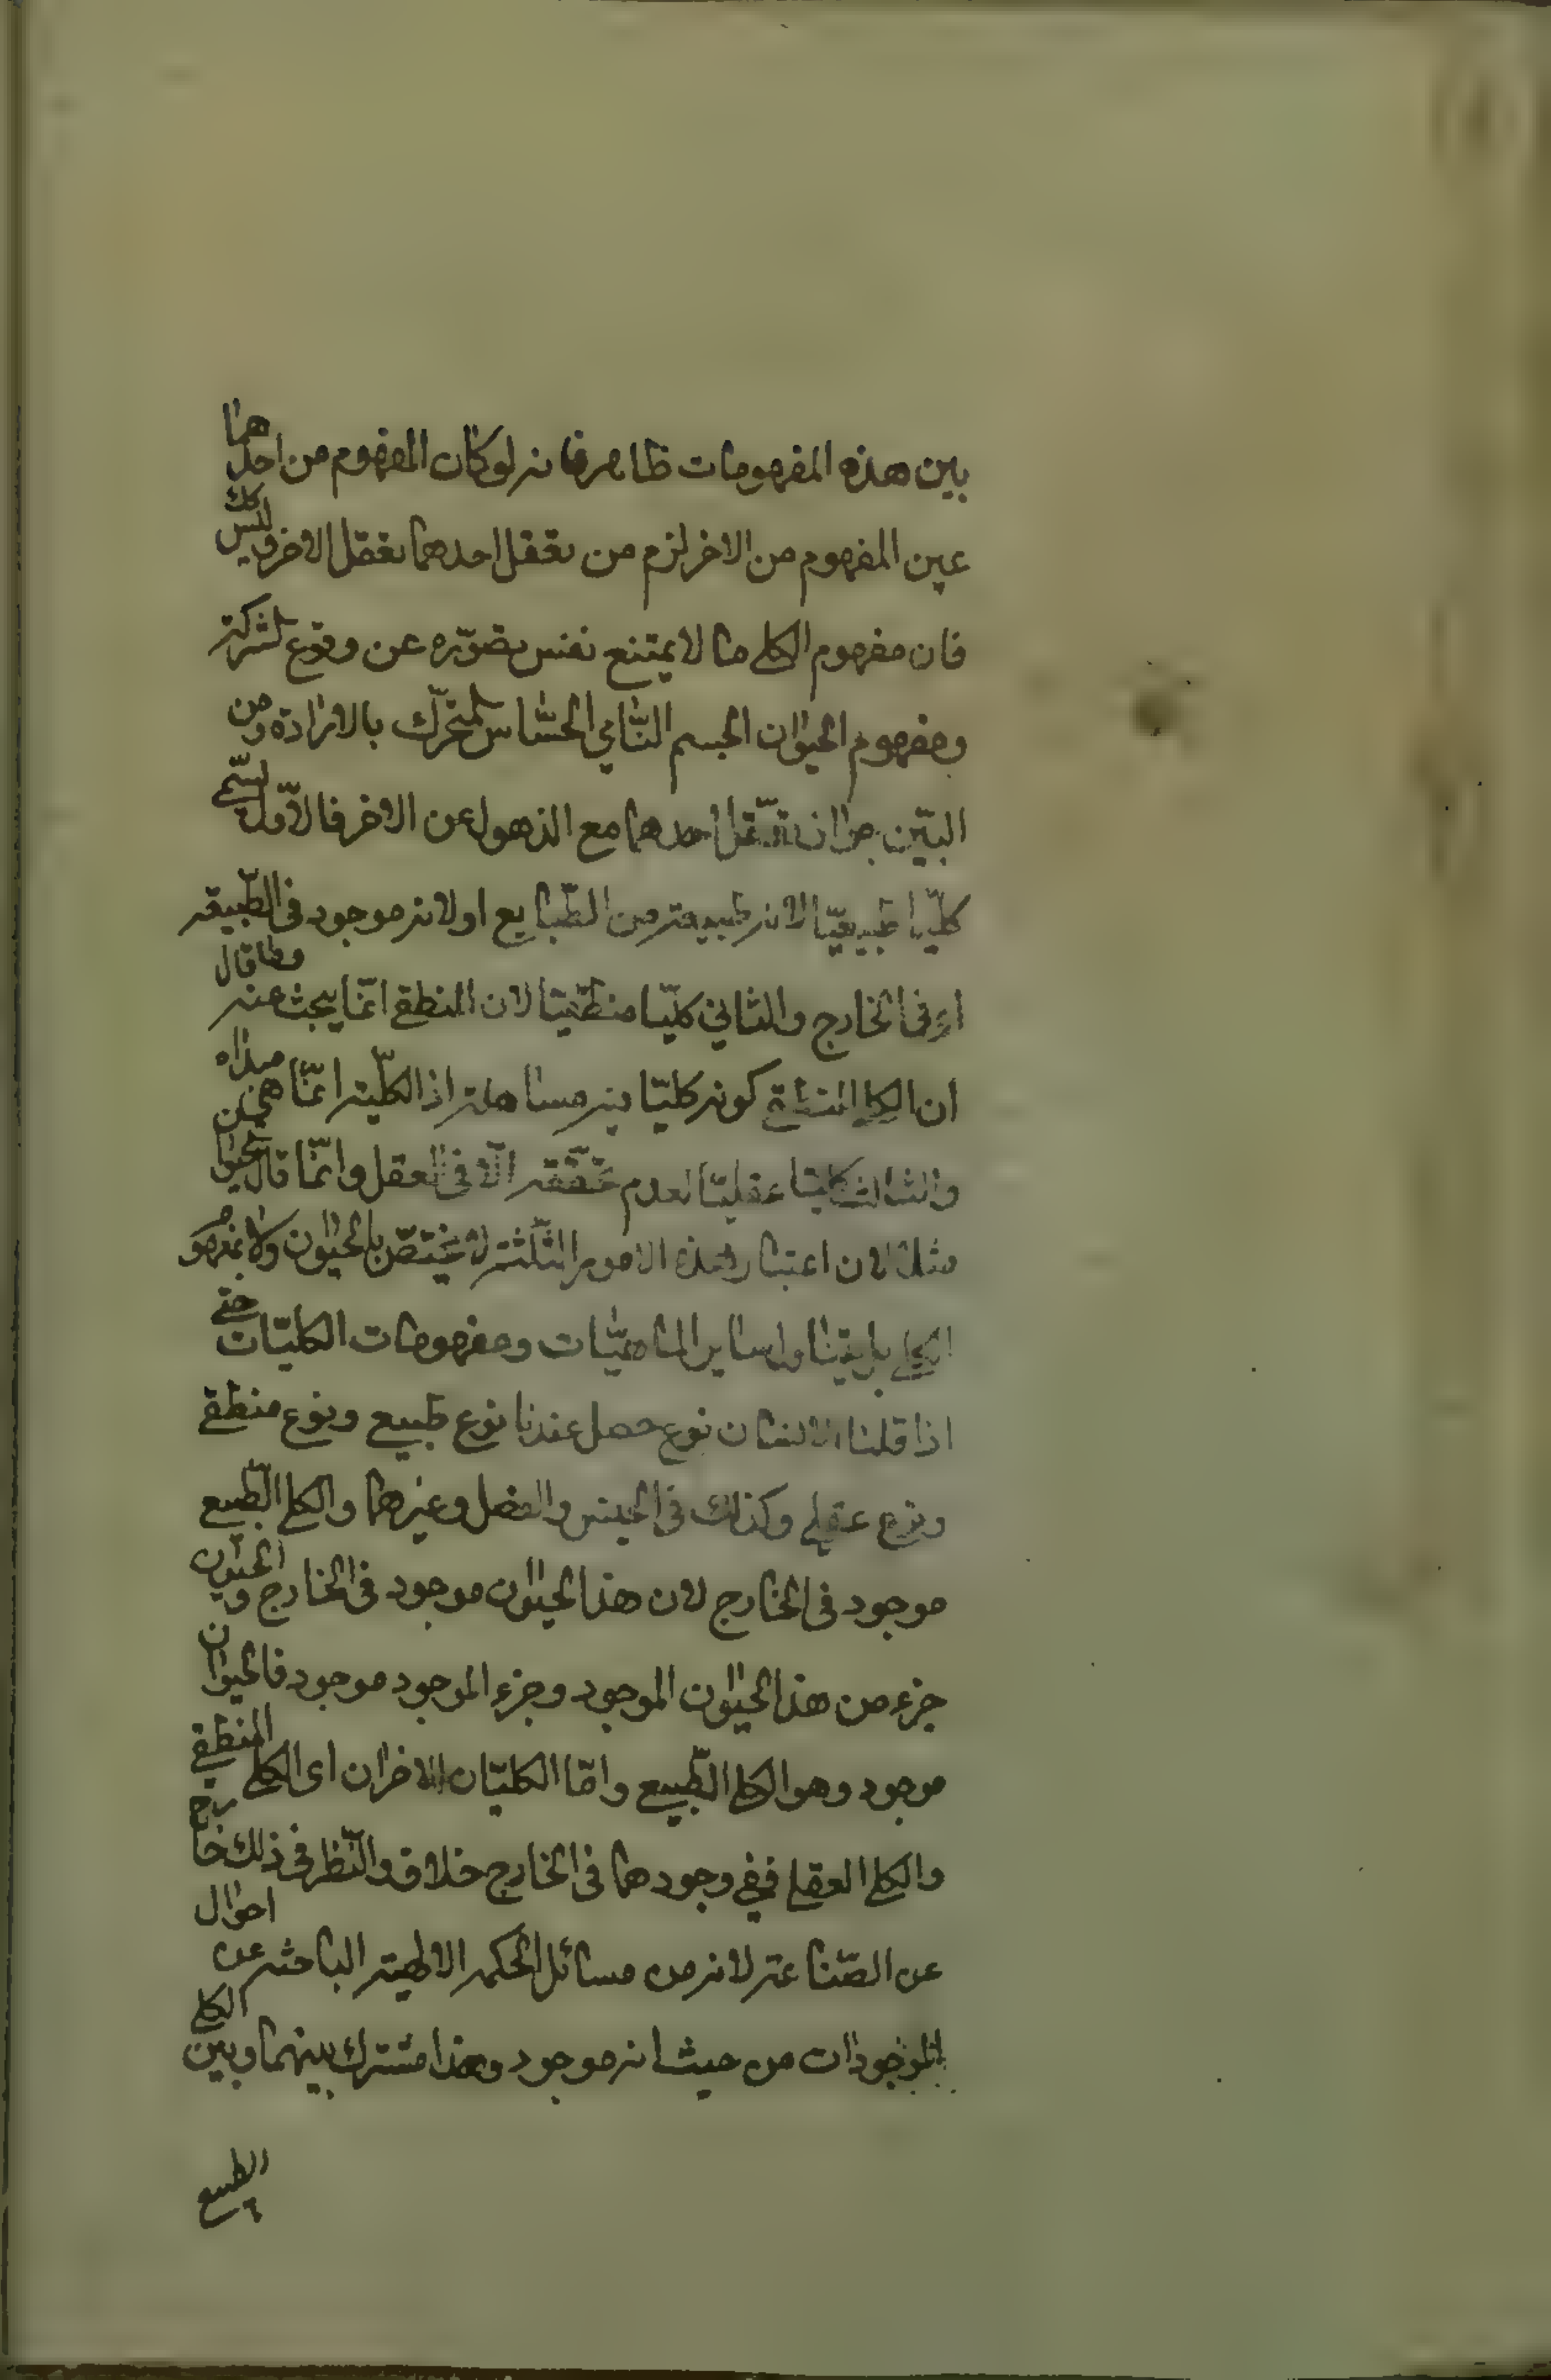 بين هذه المفهومات ظاهر فانه لو كان المفهوم من احدهما
عين المفهوم من الاخر لزم من تعقل احدهما تعقل الاخر وليس كك
فان مفهوم الكلي ما لا يمتنع نفس تصوّره عن وقوع لشركة
ومفهوم الحيوان الجسم النّامي الحسّاس لمتحرّك بالارادة ومن
البيّن جواز تعقّل احدهما مع الذهول عن الاخر فالاوّل يسمّى
كليّا طبيعيّا لانه طبيعة من الطّبايع او لانه موجود في الطّبيعه
اى في الخارج والثاني كليّا منطقيّا لان المنطقي انّما يبحث عنه وما قال
ان الكلي المنطقي كونه كليّا فيه مساهلة اذ الكلّية انّما هي مبداه
والثالث كليّا عقليّا لعدم تحقّقه الّا في العقل وانّما قال الحيوان
مثلا لان اعتبار هذه الامور الثّلثة لا يختصّ بالحيوان ولا بمفهوم
الكلي بل يتناول ساير الماهيّات ومفهومات الكليّات حتى
اذا قلنا الانسان نوع حصل عندنا نوع طبيعي ونوع منطقي
ونوع عقلي وكذلك في الجنس والفصل وغيرهما والكلي الطّبيعي
موجود في الخارج لان هذا الحيوان موجود في الخارج والحيوان
جزء من هذا الحيوان الموجود وجزء الموجود موجود فالحيوان
موجود وهو الكلي الطّبيعي وامّا الكليّان الاخران اى الكلي المنطقي
والكلي العقلي ففي وجودهما في الخارج خلاف والنّظر في ذلك خارج
عن الصّناعة لانه من مسائل الحكمه الالهية الباحثه عن احوال
الموجودات من حيث انه موجود وهذا مشترك بينهما وبين الكلي
الطبيعي